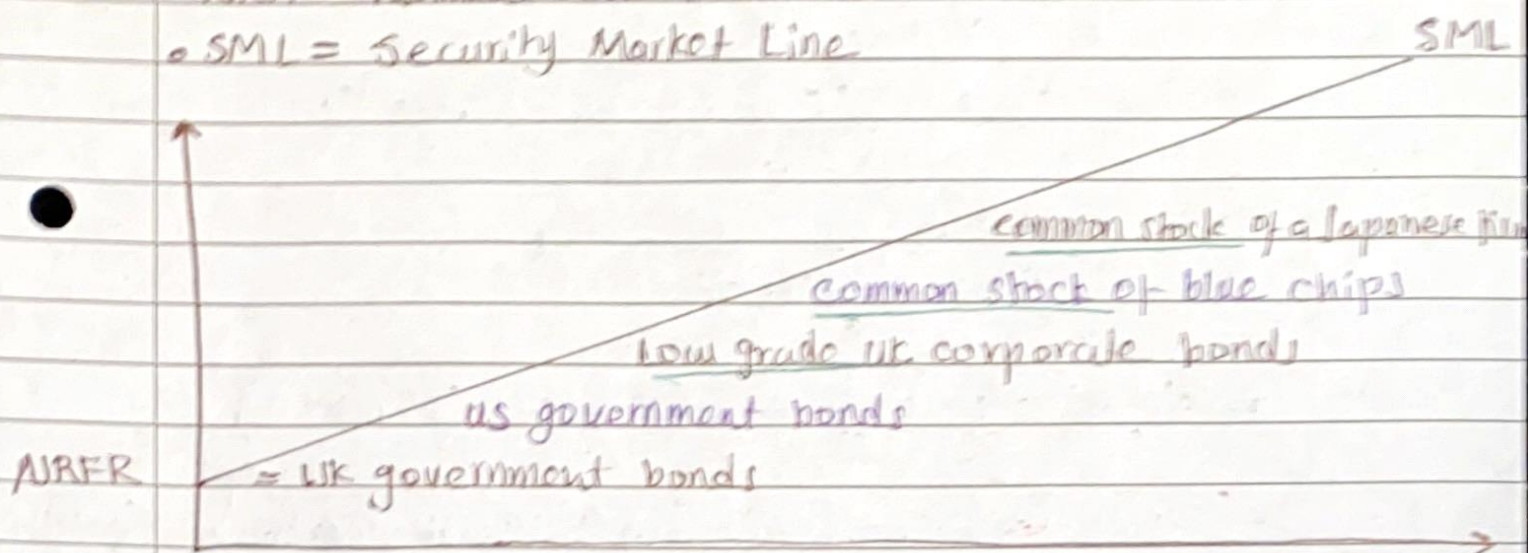 • SML = Security Market Line
SML
common stock of a Japanese
common stock of blue chips
Low grade UK corporate bonds
US government bonds
NRFR = UK government bonds